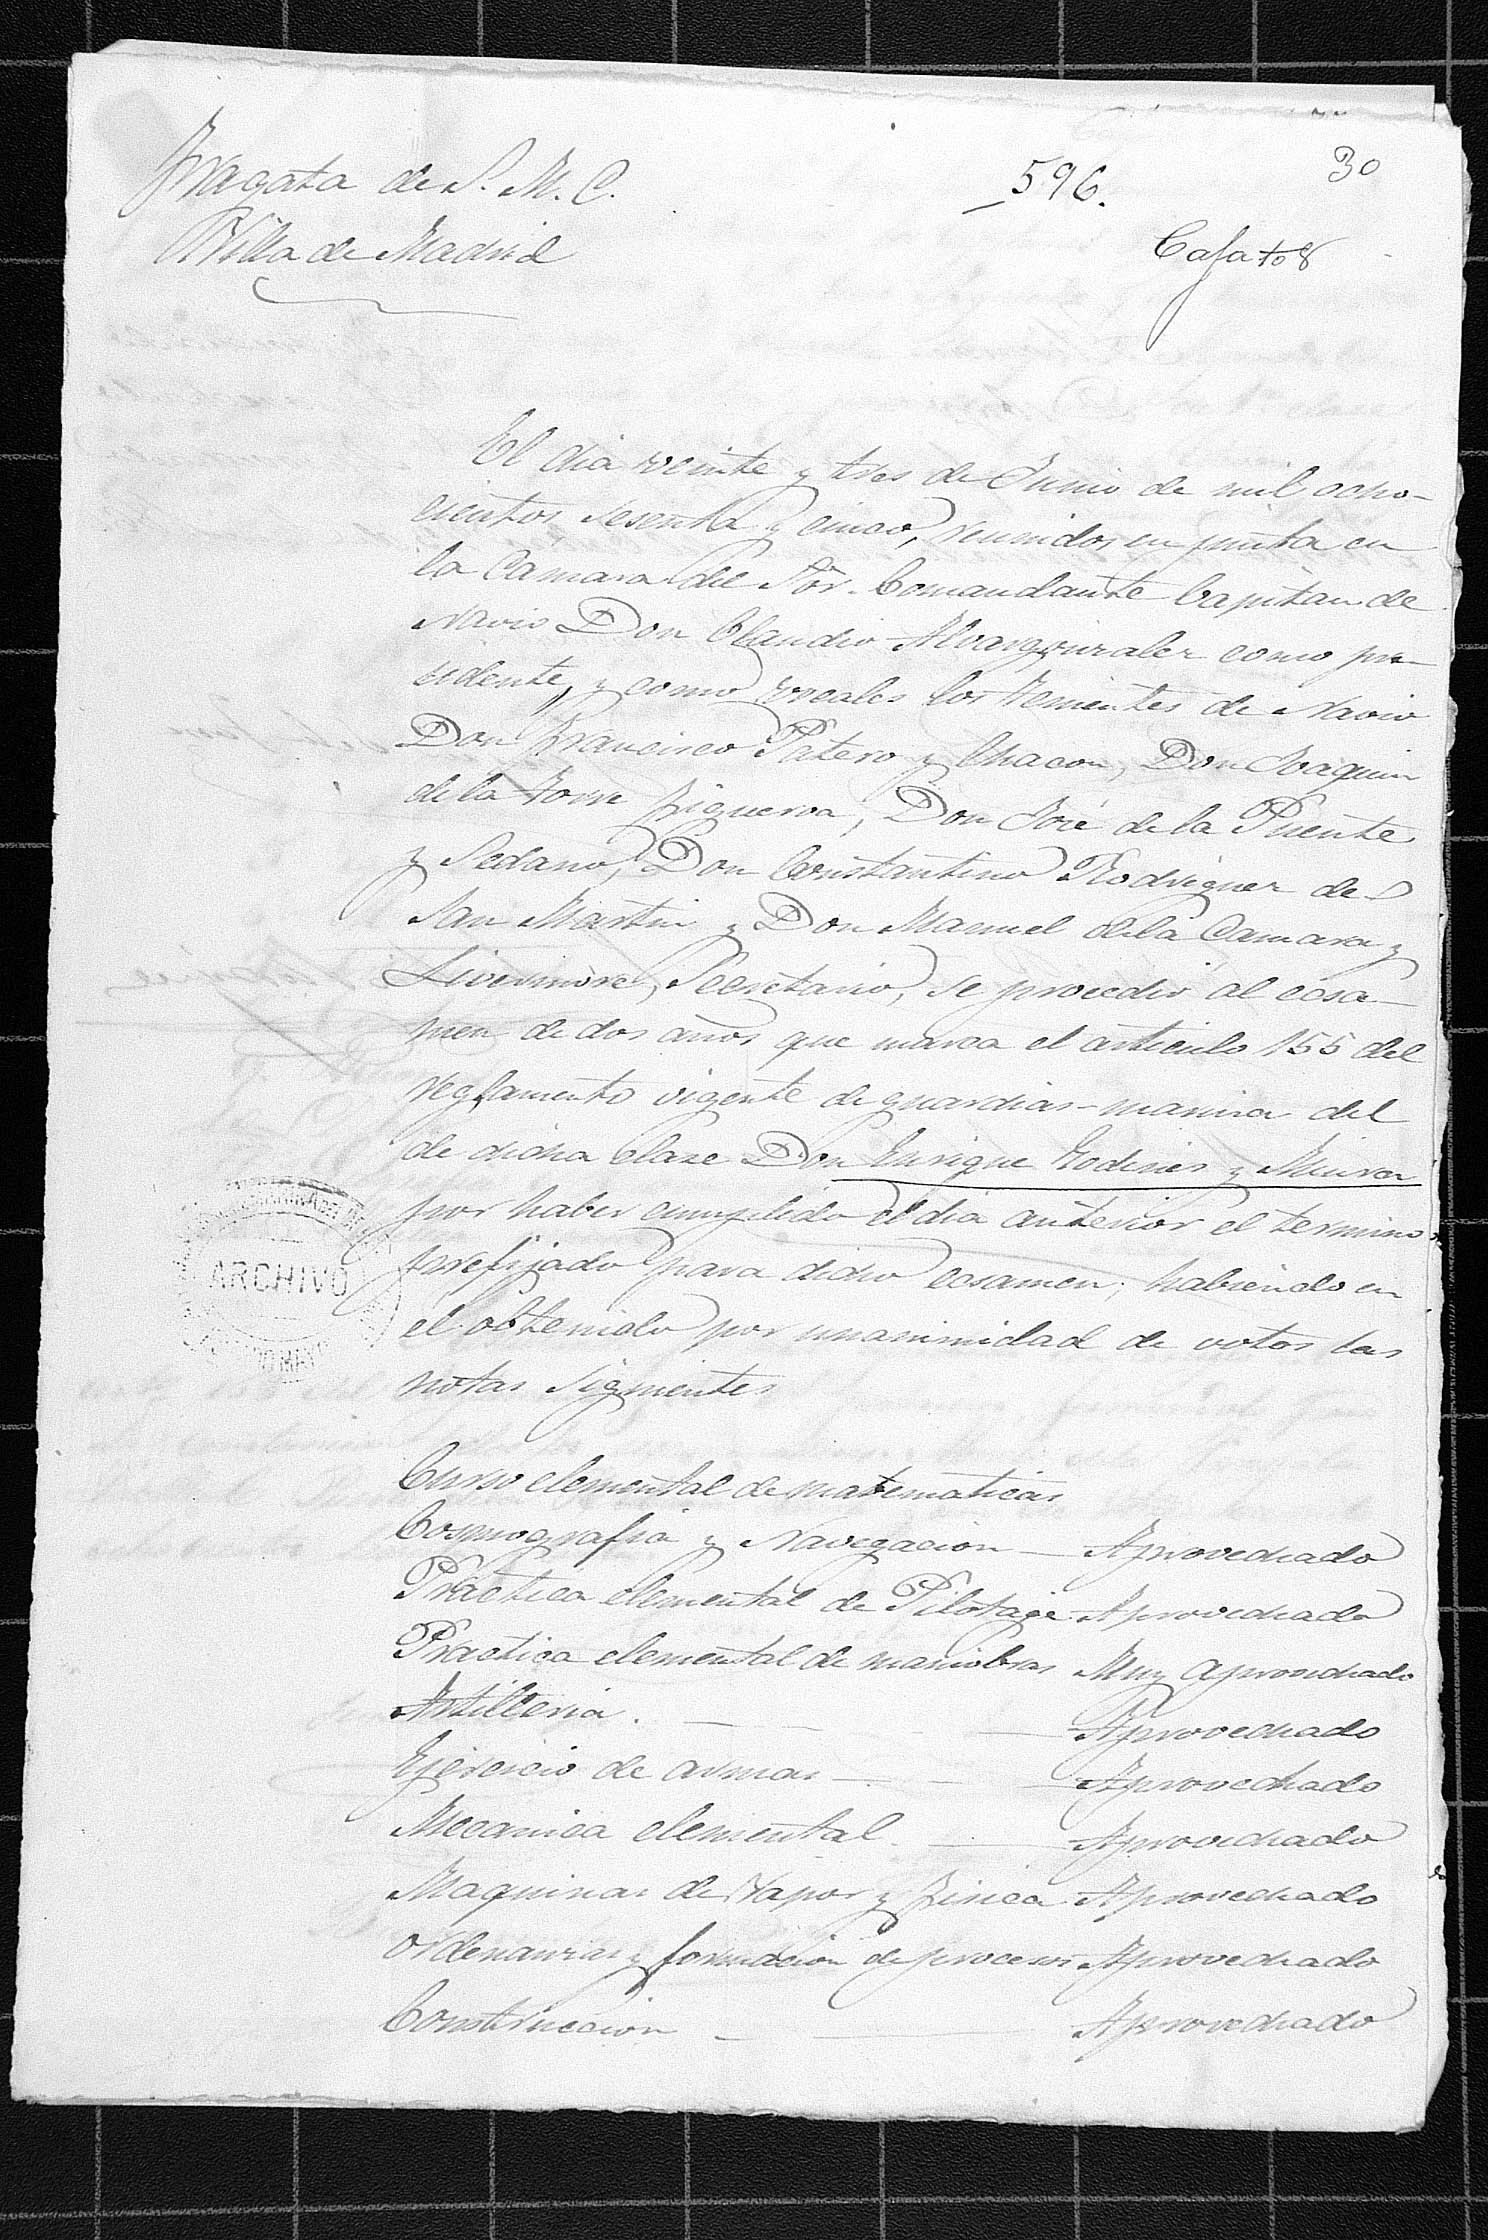 Fragata de S. M. C.
Villa de Madrid
596.
30
Cafatos
El dia veinte y tres de Junio de mil ocho-
cientos sesenta y cinco, reunidos en junta en
la Camara del Sõr. Comandante Capitan de
Navio Don Claudio Alvargonzalez como pre-
sidente, y como vocales los tenientes de Navio
Don Francisco Patero y Chacon, Don Joaquin
de la Torre Figueroa, Don José de la Puente
y Sedano, Don Constantino Rodriguez de
San Martin y Don Manuel de la Camara y
Livermore, Secretario, se procedió al ecsa-
men de dos años que marca el articulo 155 del
reglamento vigente de guardias-marina del
de dicha clase Don Enrique Godinez y
por haber cumplido el dia anterior el termino
prefijado para dicho ecsamen, habiendo en
el obtenido por unanimidad de votos las
notas siguientes
Curso elemental de matematicas
Cosmografia y Navegacion — Aprovechado
Practica elemental de Pilotage Aprovechado
Practica elemental de maniobras Muy aprovechado
Artilleria. — Aprovechado
Ejercicio de armas — Aprovechado
Mecanica elemental. — Aprovechado
Maquinas de Vapor y fisica Aprovechado
Ordenanzas y formacion de procesos Aprovechado
Construccion — Aprovechado
ARCHIVO